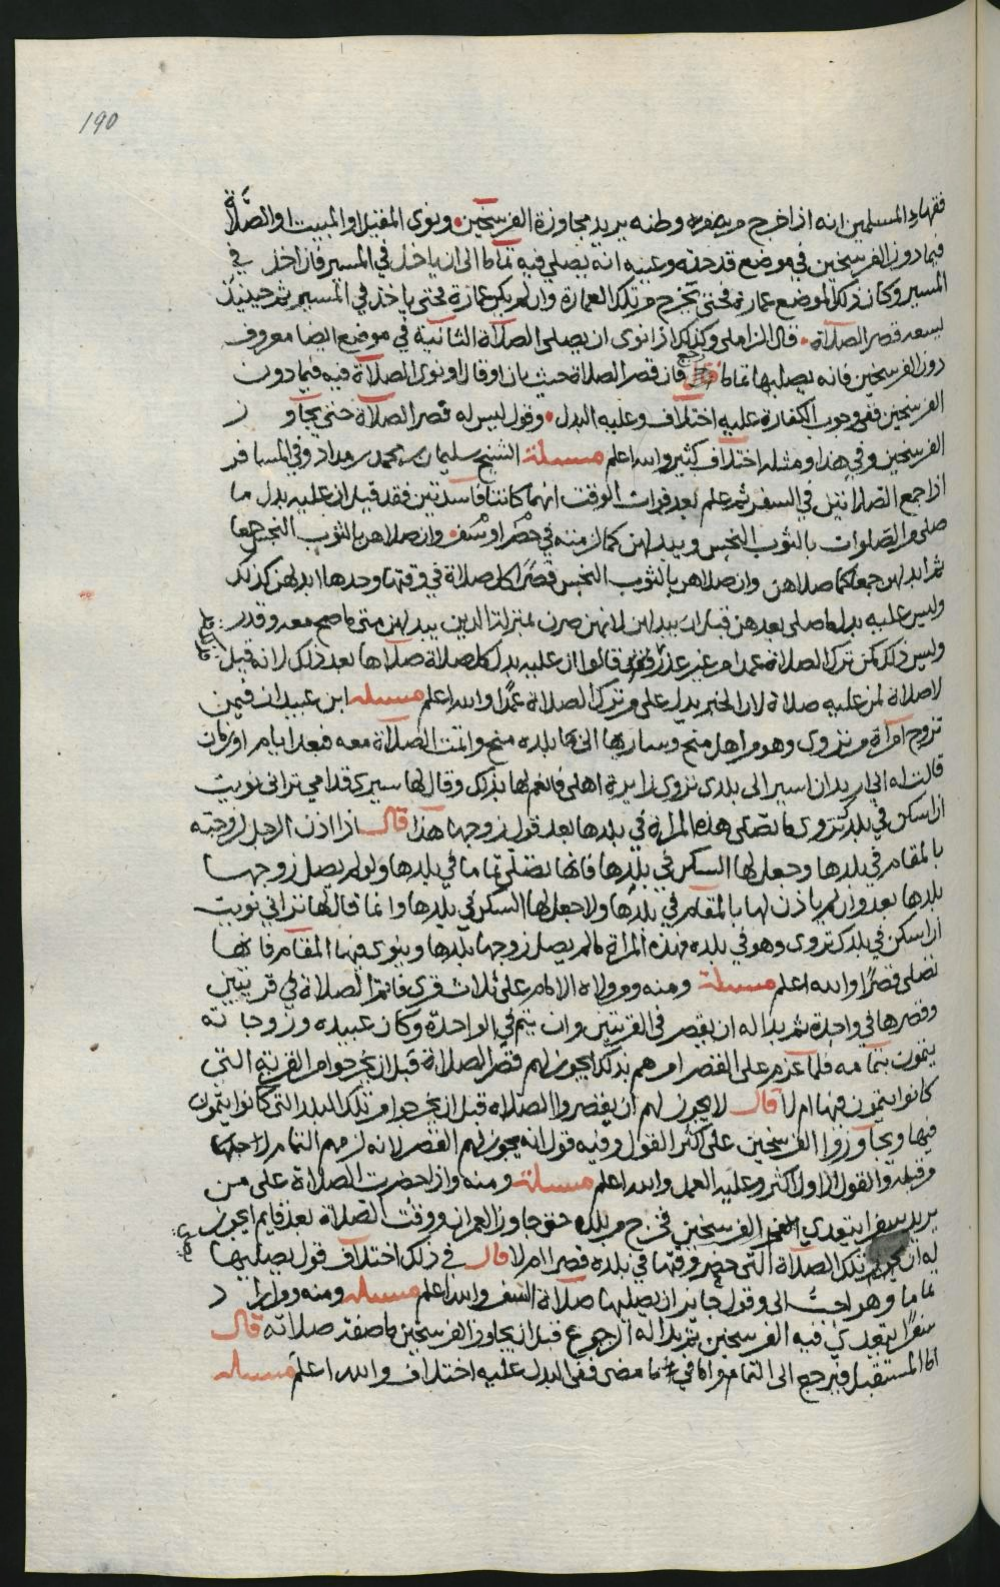 190
فقهاء المسلمين انه اذا خرج من وطنه يريد مجاوزة الفرسخين ونوى المقيل او المبيت او الصلاة
فيما دون الفرسخين في موضع قد حده وعينه انه يصلي فيه تماما الى ان ياخذ في المسير فان اخذ في
المسير وكان ذلك الموضع عمارة فحتى يخرج من تلك العمارة وان لم يكن عمارة فحتى ياخذ في المسير ثم حينئذ
يسعه قصر الصلاة قال الزاملي وكذلك اذا نوى ان يصلي الصلاة الثانية في موضع ايضا معروف
دون الفرسخين فانه يصليها تماما فان قصر الصلاة حيث بات او قال او نوى الصلاة فيه فيما دون
الفرسخين ففي وجوب الكفارة عليه اختلاف وعليه البدل وقول ليس له قصر الصلاة حتى يجاوز
الفرسخين وفي هذا ومثله اختلاف كثير والله اعلم مسئلة الشيخ سليمان بن محمد بن مداد وفي المسافر
اذا جمع الصلاتين في السفر ثم علم بعد فوات الوقت انهما كانتا فاسدتين فقد قيل ان عليه بدل ما
صلى من الصلوات بالثوب النجس ويبدلهن كما لزمنه في حضر او سفر وان صلاهن بالثوب النجس جمعا
ثم ابدلهن جمعا كما صلاهن وان صلاهن بالثوب النجس قصرا كل صلاة في وقتها وحدها ابدلهن كذلك
وليس عليه بدل ما صلى بعدهن قبل ان يبدلهن لانهن صرن بمنزلة الدين يبدلهن متى ما صح معه وقدر
وليس ذلك كمن ترك الصلاة عمدا من غير عذر فقد قالوا ان عليه بدل كل صلاة صلاها بعد ذلك لانه قيل
لا صلاة لمن عليه صلاة لان الخبر يدل على من ترك الصلاة عمدا والله اعلم مسئلة ابن عبيدان فيمن
تزوج امراة من نزوى وهو من اهل منح وسار بها الى بلده منح واتمت الصلاة معه فبعد ايام او زمان
قالت له اني اريد ان اسير الى بلدي نزوى زايرة اهلي فانعم لها بذلك وقال لها سيري قدامي تراني نويت
ان اسكن في بلدك نزوى ما تصلي هذه المراة في بلدها بعد قول زوجها هذا قال اذا اذن الرجل لزوجته
بالمقام في بلدها وجعل لها السكن في بلدها فانها تصلي تماما في بلدها ولو لم يصل زوجها
بلدها بعد وان لم ياذن لها بالمقام في بلدها ولا جعل لها السكن في بلدها وانما قال لها تراني نويت
ان اسكن في بلدك نزوى وهو في بلده فهذه المراة ما لم يصل زوجها بلدها وينوي فيها المقام فانها
تصلي قصرا والله اعلم مسئلة ومنه ومن ولاه الامام على ثلاث قرى فاتم الصلاة في قريتين
وقصرها في واحدة ثم بدا له ان يقصر في القريتين وان يتم في الواحدة وكان عبيده وزوجاته
يتمون بتمامه فلما عزم على القصر امرهم بذلك ايجوز لهم قصر الصلاة قبل ان يخرجوا من القرية التي
كانوا يتمون فيها ام لا قال لا يجوز لهم ان يقصروا الصلاة قبل ان يخرجوا من تلك البلد التي كانوا يتمون
فيها ويجاوزوا الفرسخين على اكثر القول وفيه قول انه يجوز لهم القصر لانه لزمهم التمام
والقول الاول اكثر وعليه العمل والله اعلم مسئلة ومنه واذا حضرت الصلاة على من
يريد سفرا يتعدى الفرسخين فخرج من بلده حتى جاوز العمران ووقت الصلاة بعد قايم ايجوز
له ان تلك الصلاة التي حضر وقتها في بلده قصرا ام لا قال في ذلك اختلاف قول يصليها
تماما وهو احب الي وقول جايز ان يصليها صلاة السفر والله اعلم مسئلة ومنه ومن اراد
سفرا يتعدى فيه الفرسخين ثم بدا له الرجوع قبل ان يجاوز الفرسخين ما صفة صلاته قال
اما المستقبل فيرجع الى التمام واما فيما مضى ففي البدل عليه اختلاف والله اعلم مسئلة